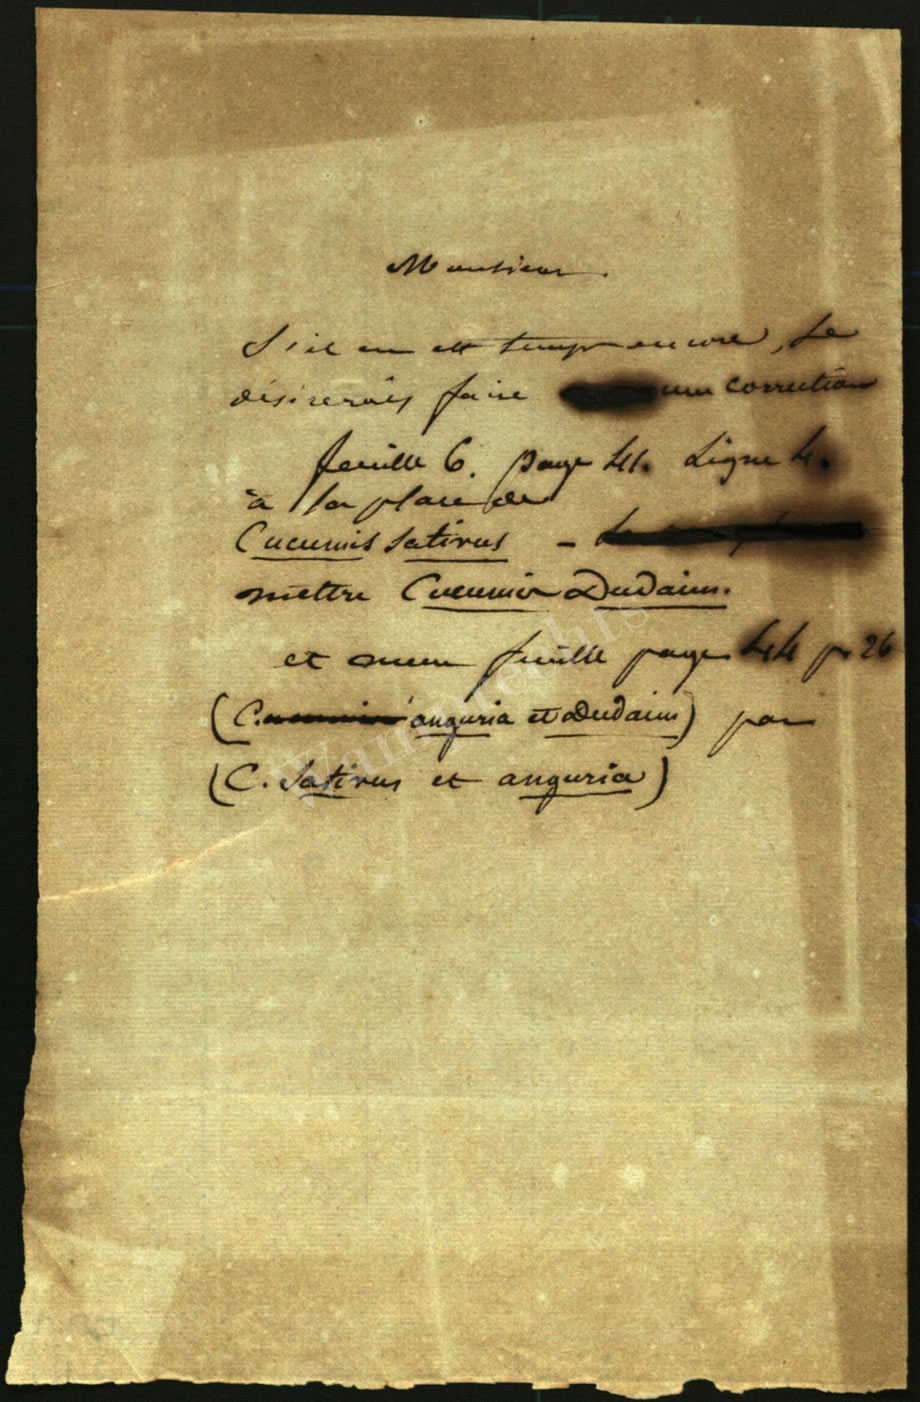 Monsieur.
S'il en est temps encore, Je
désirerais faire une correction
feuille 6. page 41. Ligne 4.
à la place de
Cucumis Sativus -
mettre Cucumis Dudaim.
et meme feuille page 44 p. 26
(C. anguria et Dudaim) par
(C. Sativus et anguria)